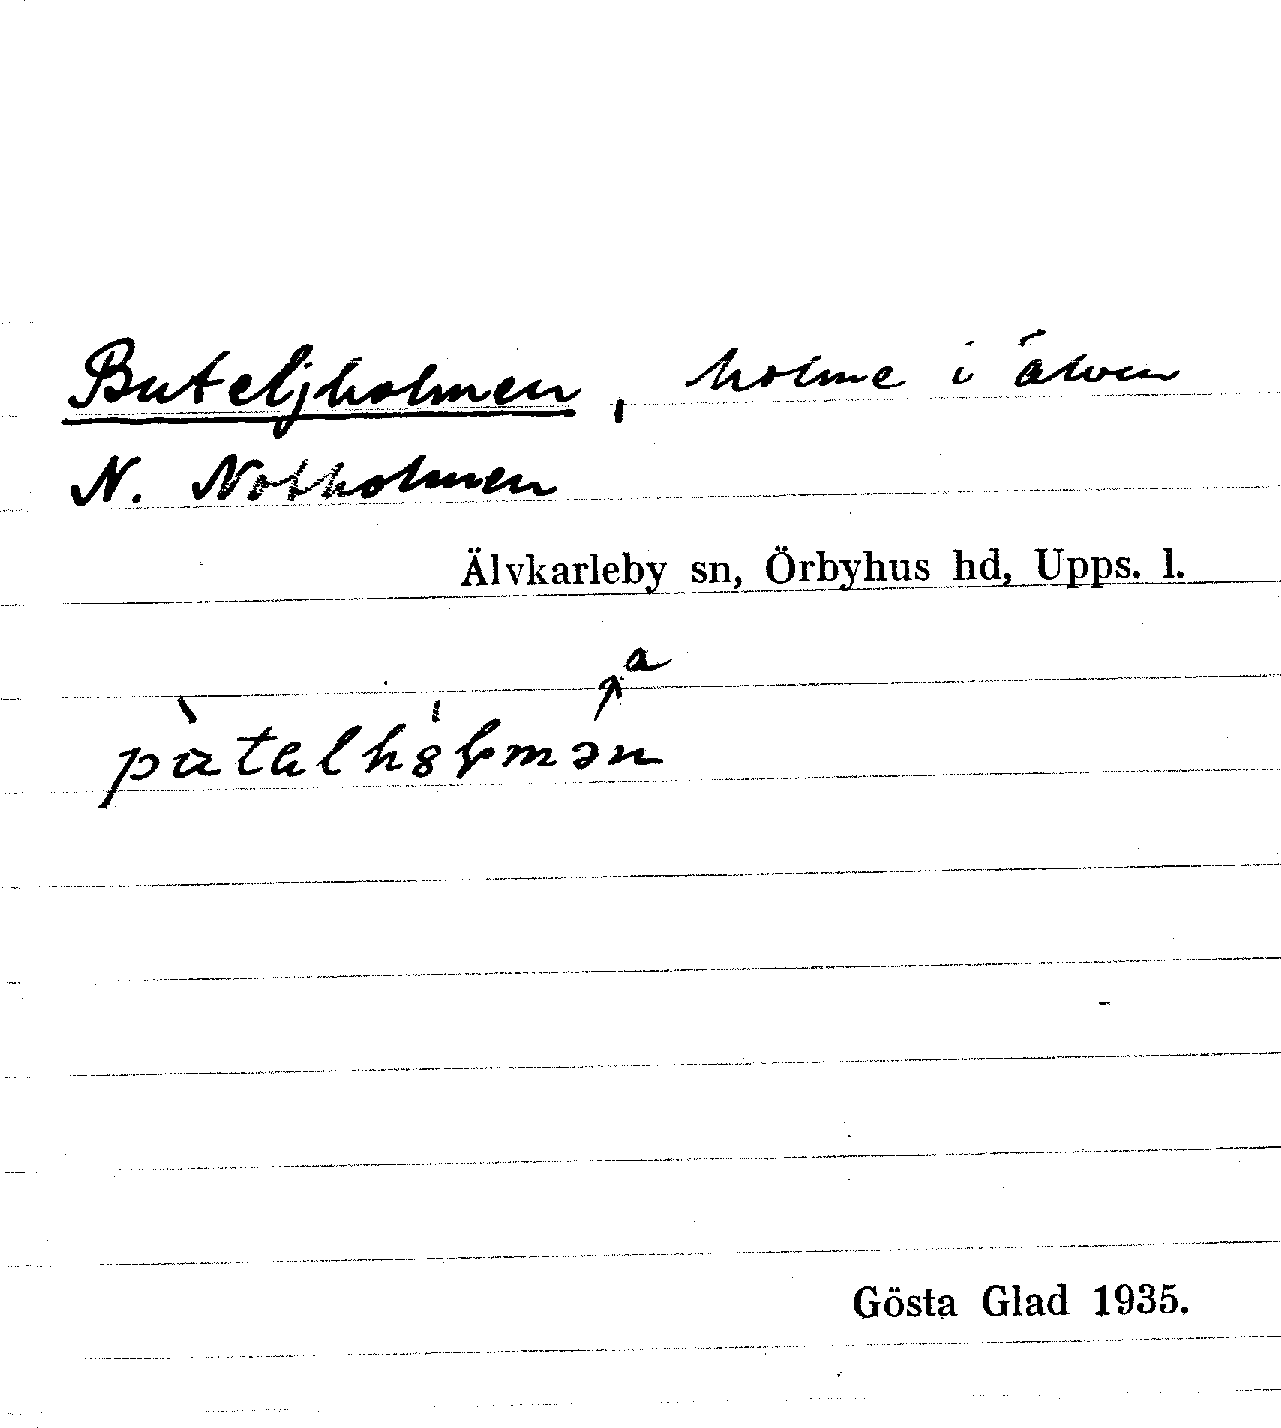 Buteljholmen, holme i älven
N. Notholmen
Älvkarleby sn, Örbyhus hd, Upps. l.
a
Gösta Glad 1935.